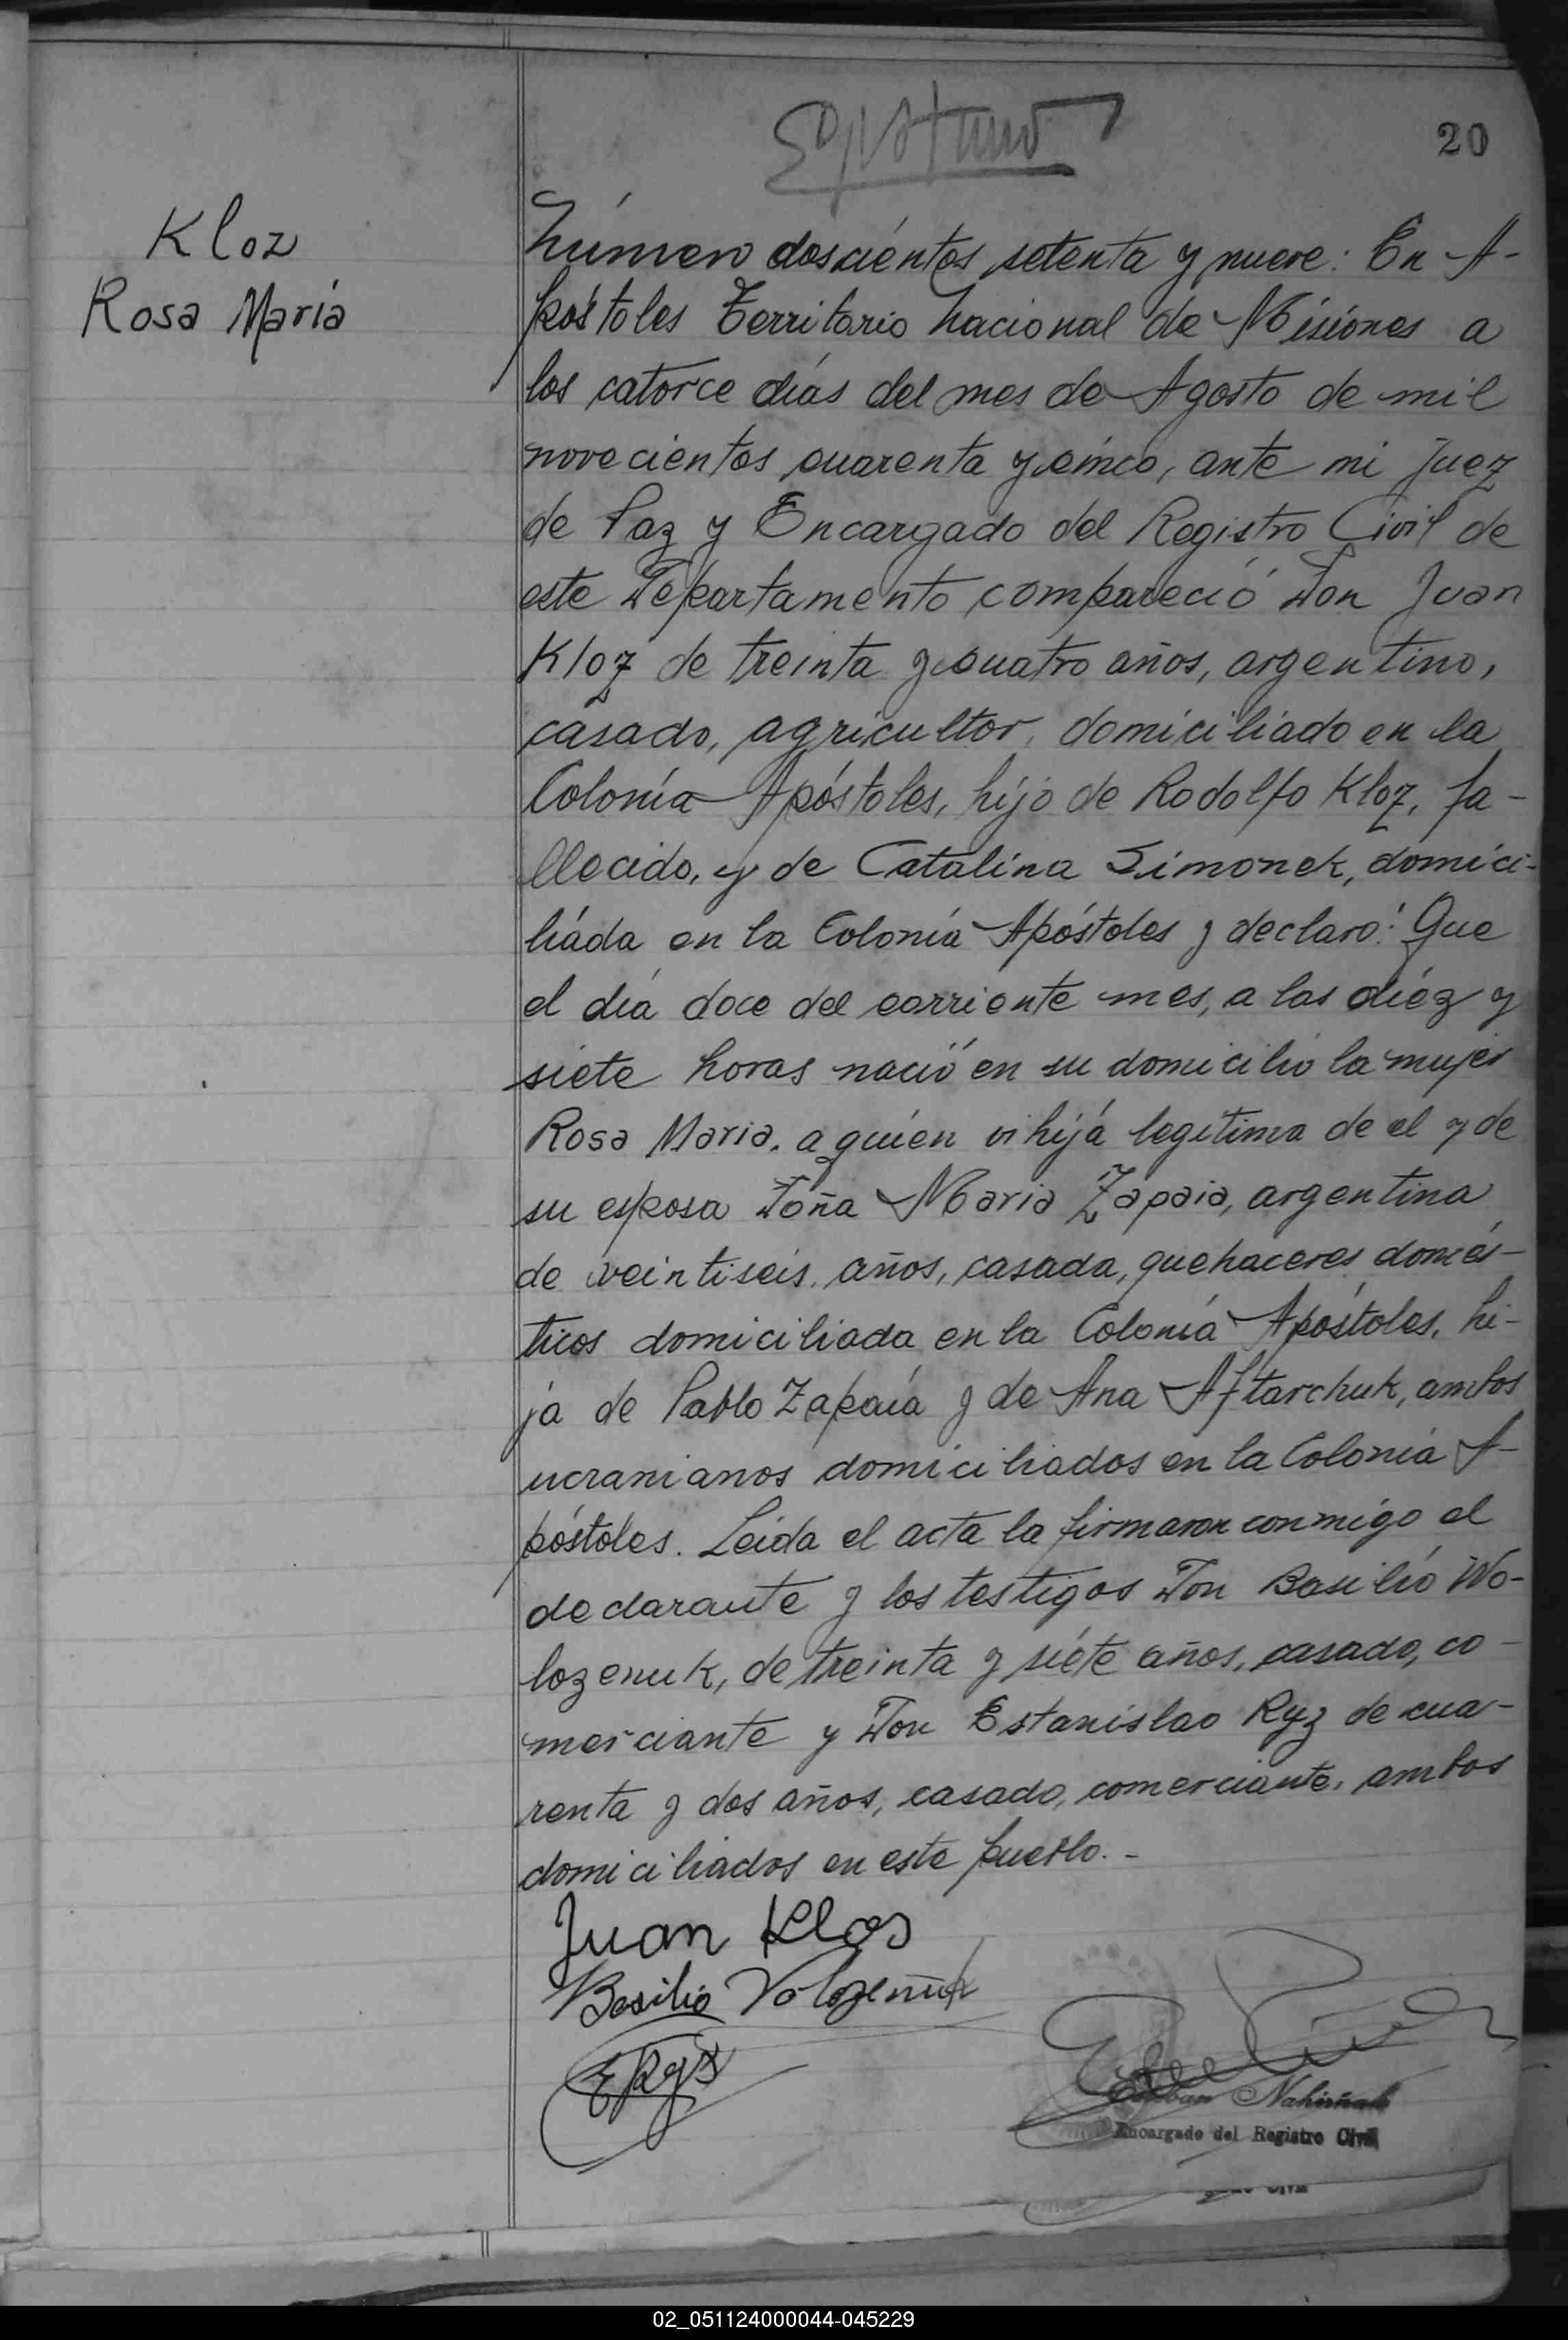 20
Kloz
Rosa María
Número doscientos setenta y nueve: En A-
póstoles Territorio Nacional de Misiones a
los catorce días del mes de Agosto de mil
novecientos cuarenta y cinco, ante mi Juez
de Paz y Encargado del Registro Civil de
este Departamento compareció Don Juan
Kloz de treinta y cuatro años, argentino,
casado, agricultor, domiciliado en la
Colonia Apóstoles, hijo de Rodolfo Kloz, fa-
llecido, y de Catalina Simonek, domici-
liada en la Colonia Apóstoles y declaró: Que
el día doce del corriente mes, a las diéz y
siete horas nació en su domicilio la mujer
Rosa Maria, a quien vi hija legítima de el y de
su esposa Doña Maria Zapaia, argentina
de veintiseis años, casada, quehaceres domés-
ticos domiciliada en la Colonia Apóstoles, hi-
ja de Pablo Zapaia y de Ana Aftarchuk, ambos
ucranianos domiciliados en la Colonia A-
póstoles. Leida el acta la firmaron conmigo el
declarante y los testigos Don Basilio Wo-
lozenuk, de treinta y siete años, casado, co-
merciante y Don Estanislao Ryz de cua-
renta y dos años, casado, comerciante, ambos
domiciliados en este pueblo.-
Juan Klos
Basilio Volozenuk
ERys
Esteban Nahirñak
Encargado del Registro Civil
Civil
02_051124000044-045229